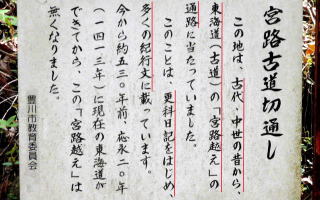 宮路古道切通し
この地は、古代、中世の昔から、
東海道(古道)の「宮路越え」の
通路に当たっていました。
このことは、更科日記をはじめ、
多くの紀行文に載っています。
今から約五三〇年前、応永二〇年
(一四一三年)に現在の東海道が
できてから、この「宮路越え」は
無くなりました。
豊川市教育委員会